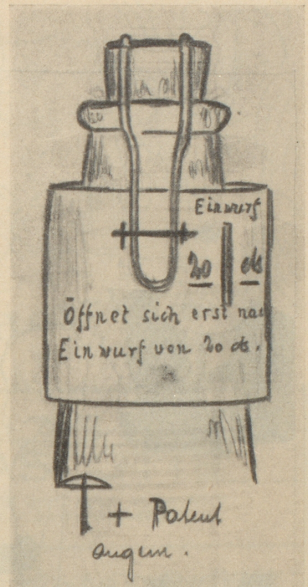 Einwurf
20 cts
Öffnet sich erst nach
Einwurf von 20 cts.
+ Patent
angem.